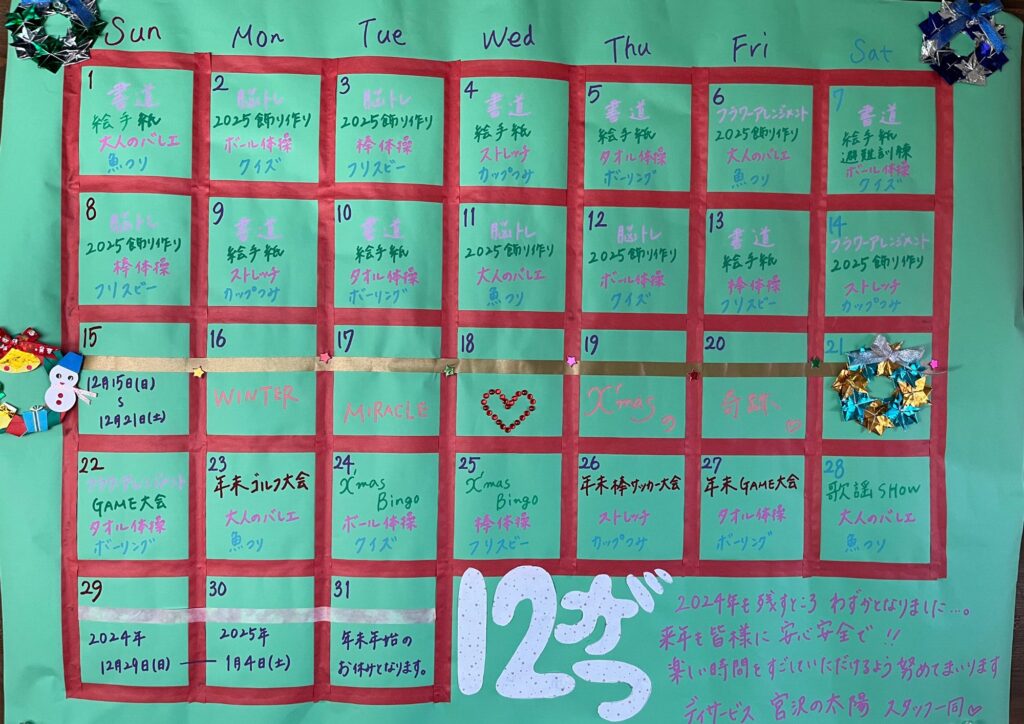 Sun Mon Tue Wed Thu Fri Sat
1
書道
絵手紙
大人のバレエ
魚つり
2
脳トレ
2025飾り作り
ボール体操
クイズ
3
脳トレ
2025飾り作り
棒体操
フリスビー
4
書道
絵手紙
ストレッチ
カップつみ
5
書道
絵手紙
タオル体操
ボーリング
6
フラワーアレンジメント
2025飾り作り
大人のバレエ
魚つり
7
書道
絵手紙
避難訓練
ボール体操
クイズ
8
脳トレ
2025飾り作り
棒体操
フリスビー
9
書道
絵手紙
ストレッチ
カップつみ
10
書道
絵手紙
タオル体操
ボーリング
11
脳トレ
2025飾り作り
大人のバレエ
魚つり
12
脳トレ
2025飾り作り
ボール体操
クイズ
13
書道
絵手紙
棒体操
フリスビー
14
フラワーアレンジメント
2025飾り作り
ストレッチ
カップつみ
15
12月15日(日)
S
12月21日(土)
16
WINTER
17
MIRACLE
18
19
X'mas
20
奇跡
21
22
フラワーアレンジメント
GAME大会
タオル体操
ボーリング
23
年末ゴルフ大会
大人のバレエ
魚つり
24
X'mas
Bingo
ボール体操
クイズ
25
X'mas
Bingo
棒体操
フリスビー
26
年末棒サッカー大会
ストレッチ
カップつみ
27
年末GAME大会
タオル体操
ボーリング
28
歌謡SHOW
大人のバレエ
魚つり
29
2024年
12月29日(日)
30
2025年
1月4日(土)
31
年末年始の
お休けとなります。
12がつ
2024年も残すところ わずかとなりました…。
来年も皆様に 安心安全で!!
楽しい時間をすごしていただけるよう 努めてまいります
デイサービス 宮沢の太陽 スタッフ一同♡